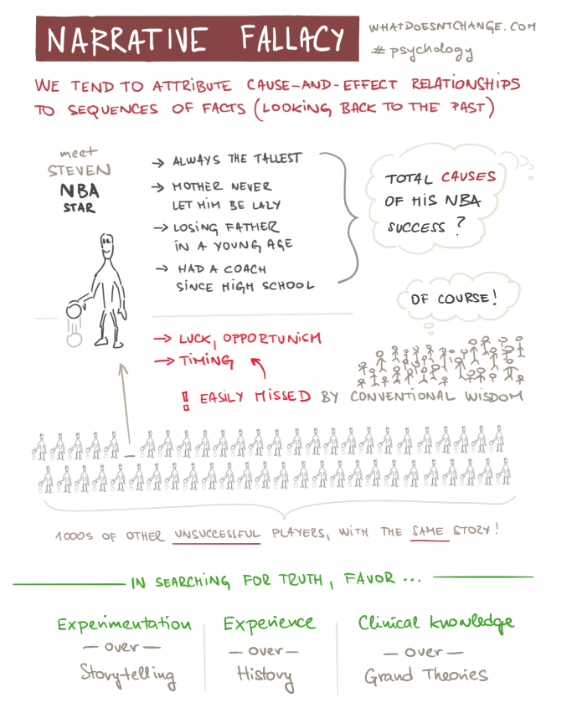 NARRATIVE FALLACY
WHATDOESNTCHANGE.COM
# psychology
WE TEND TO ATTRIBUTE CAUSE-AND-EFFECT RELATIONSHIPS
TO SEQUENCES OF FACTS (LOOKING BACK TO THE PAST)
meet
STEVEN
NBA
STAR
→ ALWAYS THE TALLEST
→ MOTHER NEVER
LET HIM BE LAZY
→ LOSING FATHER
IN A YOUNG AGE
→ HAD A COACH
SINCE HIGH SCHOOL
TOTAL CAUSES
OF HIS NBA
SUCCESS?
OF COURSE!
→ LUCK, OPPORTUNISM
→ TIMING
! EASILY MISSED BY CONVENTIONAL WISDOM
1000S OF OTHER UNSUCCESSFUL PLAYERS, WITH THE SAME STORY!
IN SEARCHING FOR TRUTH, FAVOR ...
Experimentation
— over —
Storytelling
Experience
— over —
History
Clinical knowledge
— over —
Grand Theories